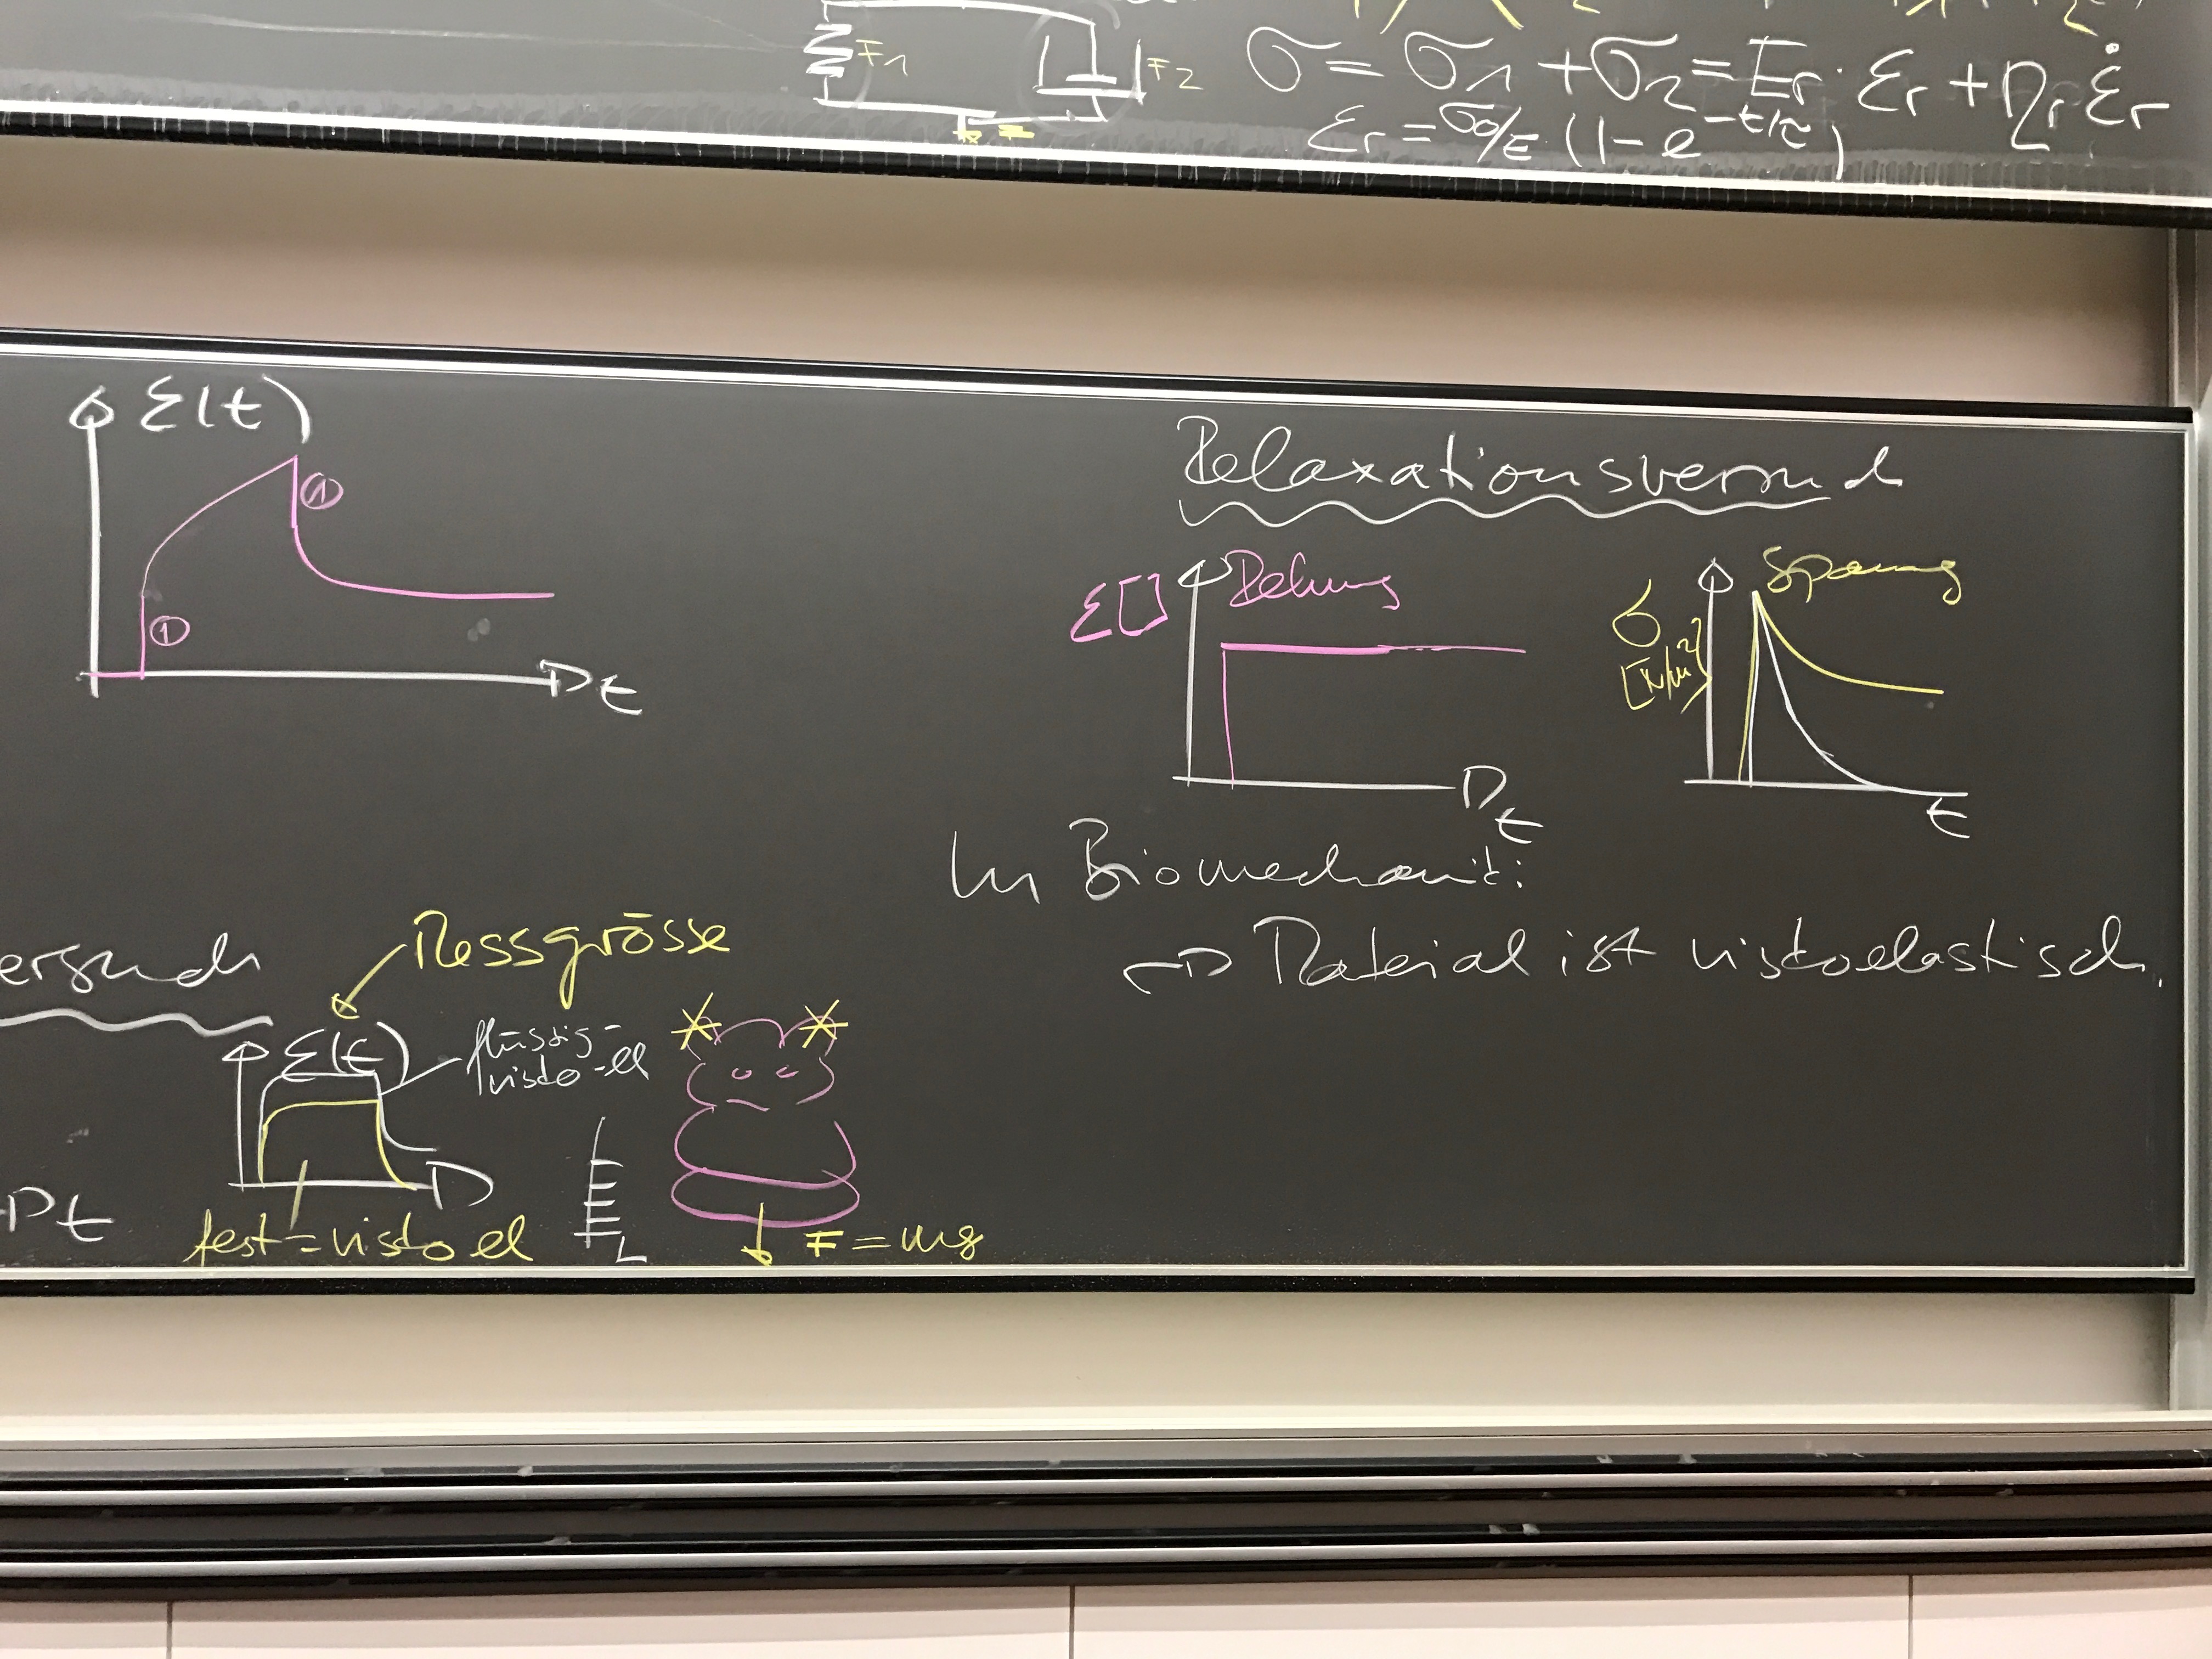 F1
F2
σ = σ1 + σ2 = Er · εr + ηr ε̇r
εr = σ0/E (1 - e^-t/τ)
ε(t)
①
①
t
Relaxationsversuch
ε[]
Dehnung
t
σ
[N/m²]
Spannung
t
In Biomechanik:
→ Material ist viskoelastisch.
ersuch
Messgrösse
ε(t)
flüssig-
visko-el
t
fest-visko el
L
F = mg